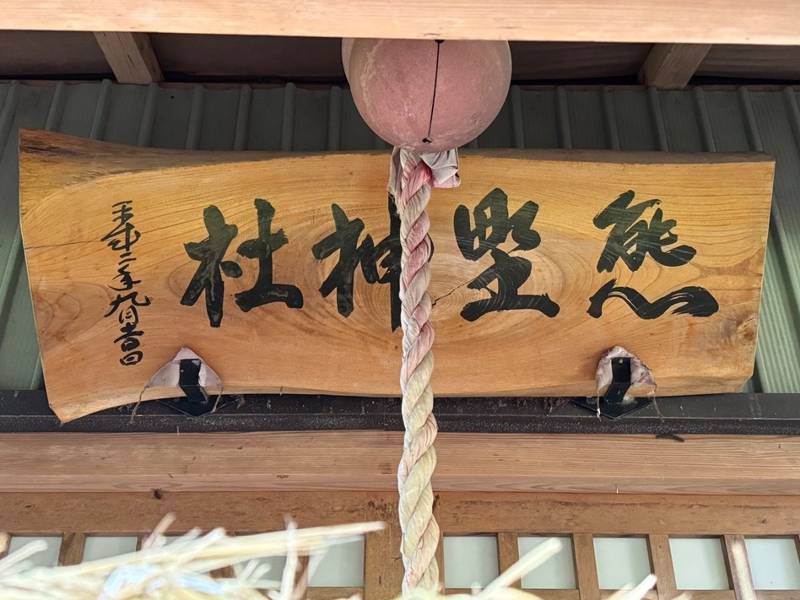 熊野神社
平成二年九月吉日